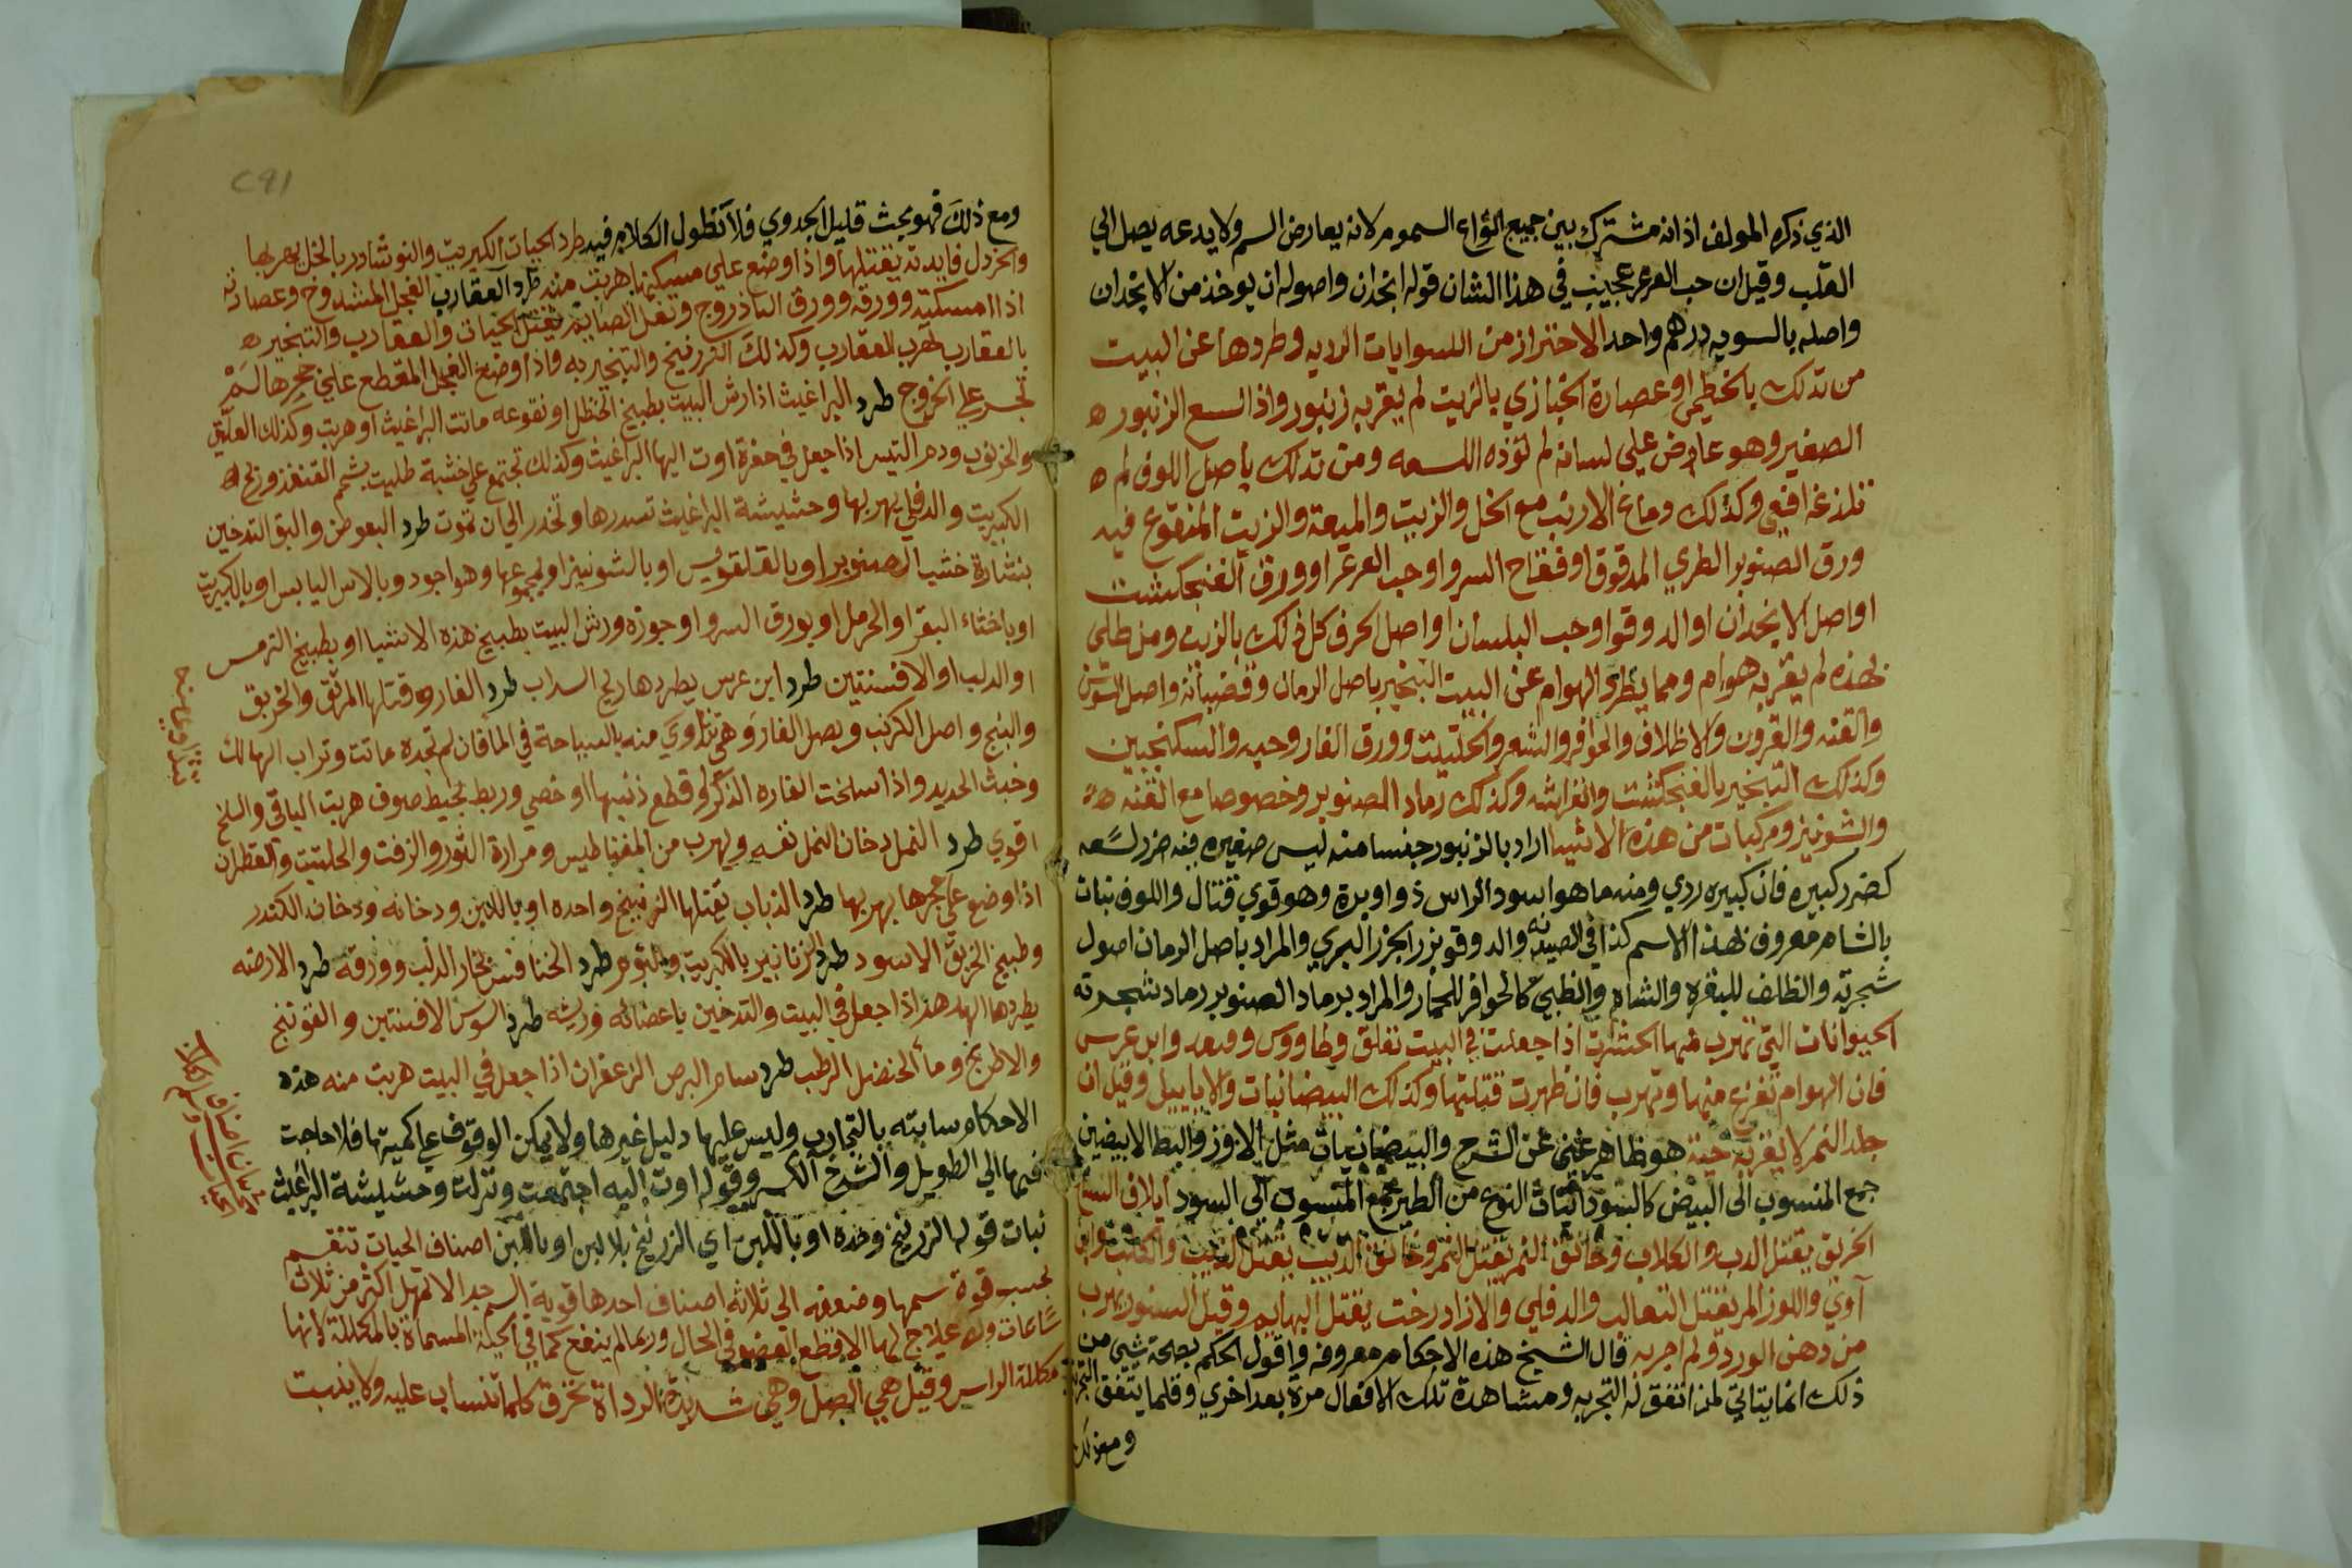 الذي ذكره المولف اذ انه مشترك بين جميع انواع السموم لانه يعارض السم ولا يدعه يصل الي
القلب وقيل ان حب العرعر عجيب في هذا الشان قوله انجدان واصوله ان يوخذ من الانجدان
واصله بالسويه درهم واحد الاحتراز من اللسوايات الرديه وطردها عن البيت
من تدلك بالخطمي او عصارة الخبازي بالزيت لم يقربه زنبور واذا لسع الزنبور
الصغير وهو عاض علي لسانه لم تؤذه اللسعه ومن تدلك باصل اللوف لم
تلذغه افعي وكذلك دماغ الارنب مع الخل والزيت والميعة والزيت المنقوع فيه
ورق الصنوبر الطري المدقوق او فقاح السرو او حب العرعر او ورق الفنجكشت
او اصل الانجدان او الدوقو او حب البلسان او اصل الحرف كل ذلك بالزيت ومن طلي
بهذه لم يقربه هوام ومما يطرد الهوام عن البيت التبخير باصل الرمان وقضبانه واصل السوسن
والقنه والقرون والاظلاف والحوافر والشعر والحلتيت وورق الغار وحبه والسكنجبين
وكذلك التبخير بالفنجكشت وانفراشه وكذلك رماد الصنوبر وخصوصا مع القنه
والشونيز ومركبات من هذه الاشيا اراد بالزنبور جنسا منه ليس صغيره فيه ضرر لسعه
كضرر كبيره فان كبيره ردي ومنه ما هو اسود الراس ذو اوبرة وهو قوي قتال واللوف نبات
بالشام معروف بهذا الاسم كذا في الصيدنه والدوقو بزر الجزر البري والمراد باصل الرمان اصول
شجرته والظلف للبقره والشاه والظبي كالحوافر للحمار والمراد برماد الصنوبر رماد شجرته
الحيوانات التي تهرب منها الحشرات اذا جعلت في البيت تقلق وطاووس وقنفد وابن عرس
فان الهوام تفزع منها وتهرب فان ظهرت قتلتها وكذلك البيضانيات والابابيل وقيل ان
جلد النمر لا يقربه حية هو ظاهر غني عن الشرح والبيضانيات مثل الاوز والبط الابيضين
جمع المنسوب الى البيض كالسودانيات النوع من الطير جمع المنسوب الى السود ايلاف السباع
الخربق يقتل الدب والكلاب وخانق النمر يقتل النمر وخانق الذيب يقتل الذيب والكلب وابن
آوي واللوز المر يقتل الثعالب والدفلي والازاد رخت يقتل البهايم وقيل السنور يهرب
من دهن الورد ولم اجربه قال الشيخ هذه الاحكام معروفه واقول الحكم بصحة شيي من
ذلك انما يتاتي لمن اتفق له التجربه ومشاهدة تلك الافعال مرة بعد اخري وقلما يتفق التجربة
ومع ذلك
ومع ذلك فهو بحث قليل الجدوي فلا نطول الكلام فيه طرد الحيات الكبريت والنوشادر بالخل يهربها
والخردل فايدته يقتلها واذا وضع علي مسكنها هربت منه طرد العقارب الفجل المشدوخ وعصارته
اذا امسكته وورقه وورق الباذروج وتفل الصايم يقتل الحيات والعقارب والتبخير
بالعقارب يهرب العقارب وكذلك الزرنيخ والتبخير به واذا وضع الفجل المقطع علي جحرها لم
تجسر علي الخروج طرد البراغيث اذا رش البيت بطبيخ الحنظل او نقوعه ماتت البراغيث او هربت وكذلك العليق
والخرنوب ودم التيس اذا جعل في حفرة اوت اليها البراغيث وكذلك تجتمع علي خشبة طليت بشحم القنفذ وريح
الكبريت والدفلي يهربها وحشيشة البراغيث تسدرها وتخدر الي ان تموت طرد البعوض والبق التدخين
بنشارة خشب الصنوبر او بالقلقديس او بالشونيز او بمجموعها وهو اجود وبالاس اليابس او بالكبريت
او باخثاء البقر او الحرمل او بورق السرو او جوزه ورش البيت بطبيخ هذه الاشيا او بطبيخ الترمس
او الدلب او الافسنتين طرد ابن عرس يطردها ريح السداب طرد الفار وقتلها المرتق والخربق
والبنج واصل الكرنب وبصل الفار وهي تتداوي منه بالسباحة في الما فان لم تجده ماتت وتراب الهالك
وخبث الحديد واذا سلخت الفاره الذكر او قطع ذنبها او خصي وربط بخيط صوف هربت الباقي والسلخ
اقوي طرد النمل دخان النمل نفسه ويهرب من المغناطيس ومرارة الثور والزفت والحلتيت والقطران
اذا وضع علي جحرها يهربها طرد الذباب يقتلها الزرنيخ واحده او باللبن ودخانه ودخان الكندر
وطبيخ الخربق الاسود طرد الزنابير بالكبريت والثوم طرد الخنافس بخار الدلب وورقه طرد الارضه
يطردها الهدهد اذا جعل في البيت والتدخين باعضائه وريشه طرد السوس الافسنتين والفوتنج
والاطرنج وماء الحنضل الرطب طرد سام ابرص الزعفران اذا جعل في البيت هربت منه هذه
الاحكام سابته بالتجارب وليس عليها دليل غيرها ولا يمكن الوقوف علي كميتها فلا حاجت
فيها الي الطويل والشدخ الكسر وقوله اوت اليه اجتمعت ونزلت وحشيشة البراغيث
نبات قوله الزرنيخ وحده او باللبن اي الزرنيخ بلا لبن او باللبن اصناف الحيات تنقسم
بحسب قوة سمها وضعفه الي ثلاثه اصناف احدها قوية السم جدا لا تمهل اكثر من ثلاث
ساعات ولا علاج لها الا قطع العضو في الحال وربما لم ينفع كما في الحية المسماة بالمكللة لانها
مكللة الراس وقيل هي الصل وهي شديدة الرداة تحرق كلما تنساب عليه ولا ينبت